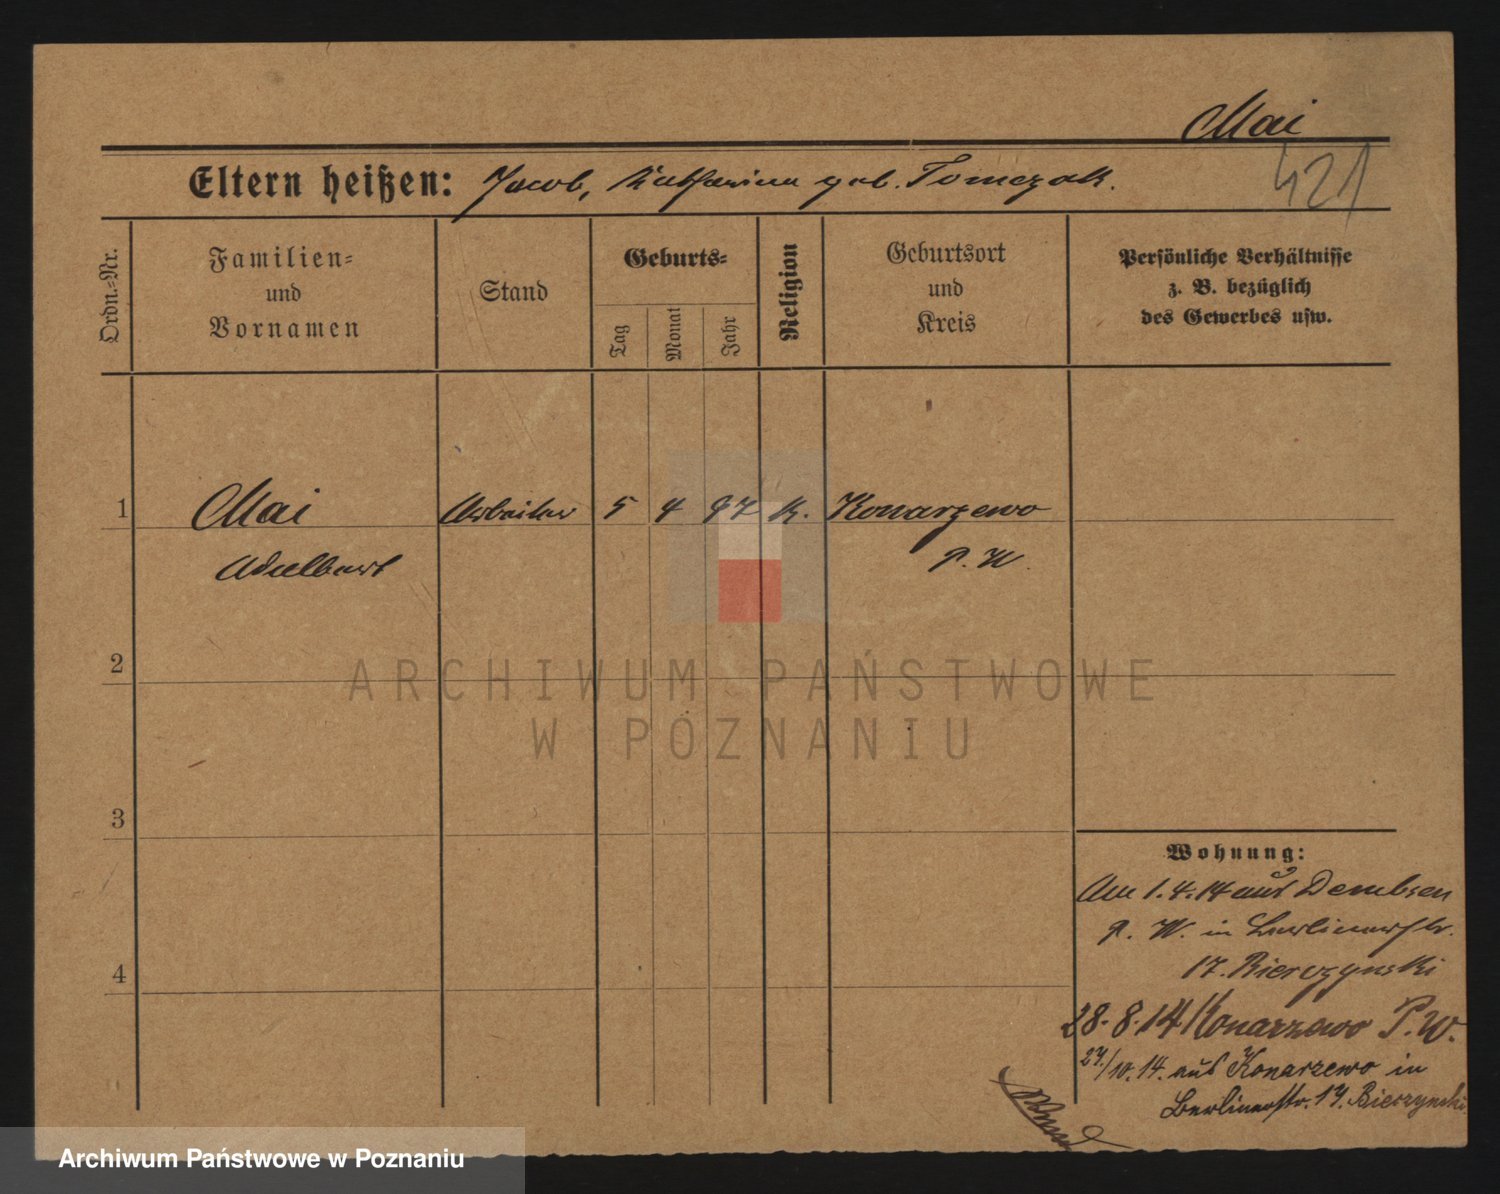 Mai
421
Eltern heißen: Jacob, Katharina geb. Tomczak.
Ordn.=Nr.
Familien= und Vornamen
Stand
Geburts=
Tag
Monat
Jahr
Religion
Geburtsort und Kreis
Persönliche Verhältnisse
z. B. bezüglich
des Gewerbes usw.
1 Mai Arbeiter 5 4 97 k. Konarzewo
Adalbert P. W.
2
3
4
Wohnung:
Am 1.4.14 aus Dembsen
P. W. in Berlinerstr.
17. Bierczynski
28.8.14 Konarzewo P. W.
27./10.14. aus Konarzewo in
Berlinerstr. 17. Bierczynski
ARCHIWUM PAŃSTWOWE
W POZNANIU
Archiwum Państwowe w Poznaniu